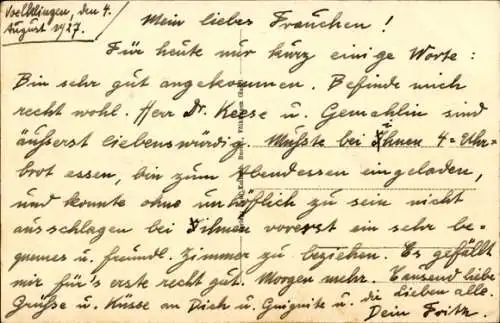 Voelklingen, den 4.
August 1927.
Mein liebes Frauchen!
Für heute nur kurz einige Worte:
Bin sehr gut angekommen. Befinde mich
recht wohl. Herr Dr. Keese u. Gemahlin sind
äußerst liebenswürdig. Mußte bei ihnen 4=Uhr=
brot essen, bin zum Abendessen eingeladen,
und konnte ohne unhöflich zu sein nicht
ausschlagen bei ihnen vorerst ein sehr be-
quemes u. freundl. Zimmer zu beziehen. Es gefällt
mir für's erste recht gut. Morgen mehr. Tausend liebe
Grüße u. Küsse an Dich u. u. die Lieben alle.
Dein Fritz.